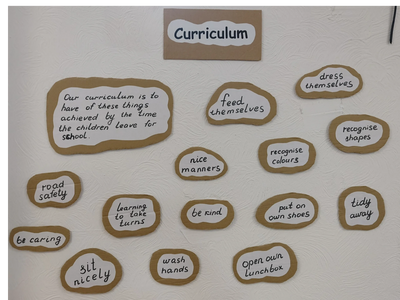 Curriculum
Our curriculum is to
have of these things
achieved by the time
the children leave for
school
feed
themselves
dress
themselves
recognise
shapes
nice
manners
recognise
colours
road
safety
learning
to take
turns
be kind
put on
own shoes
tidy
away
be caring
sit
nicely
wash
hands
open own
lunchbox